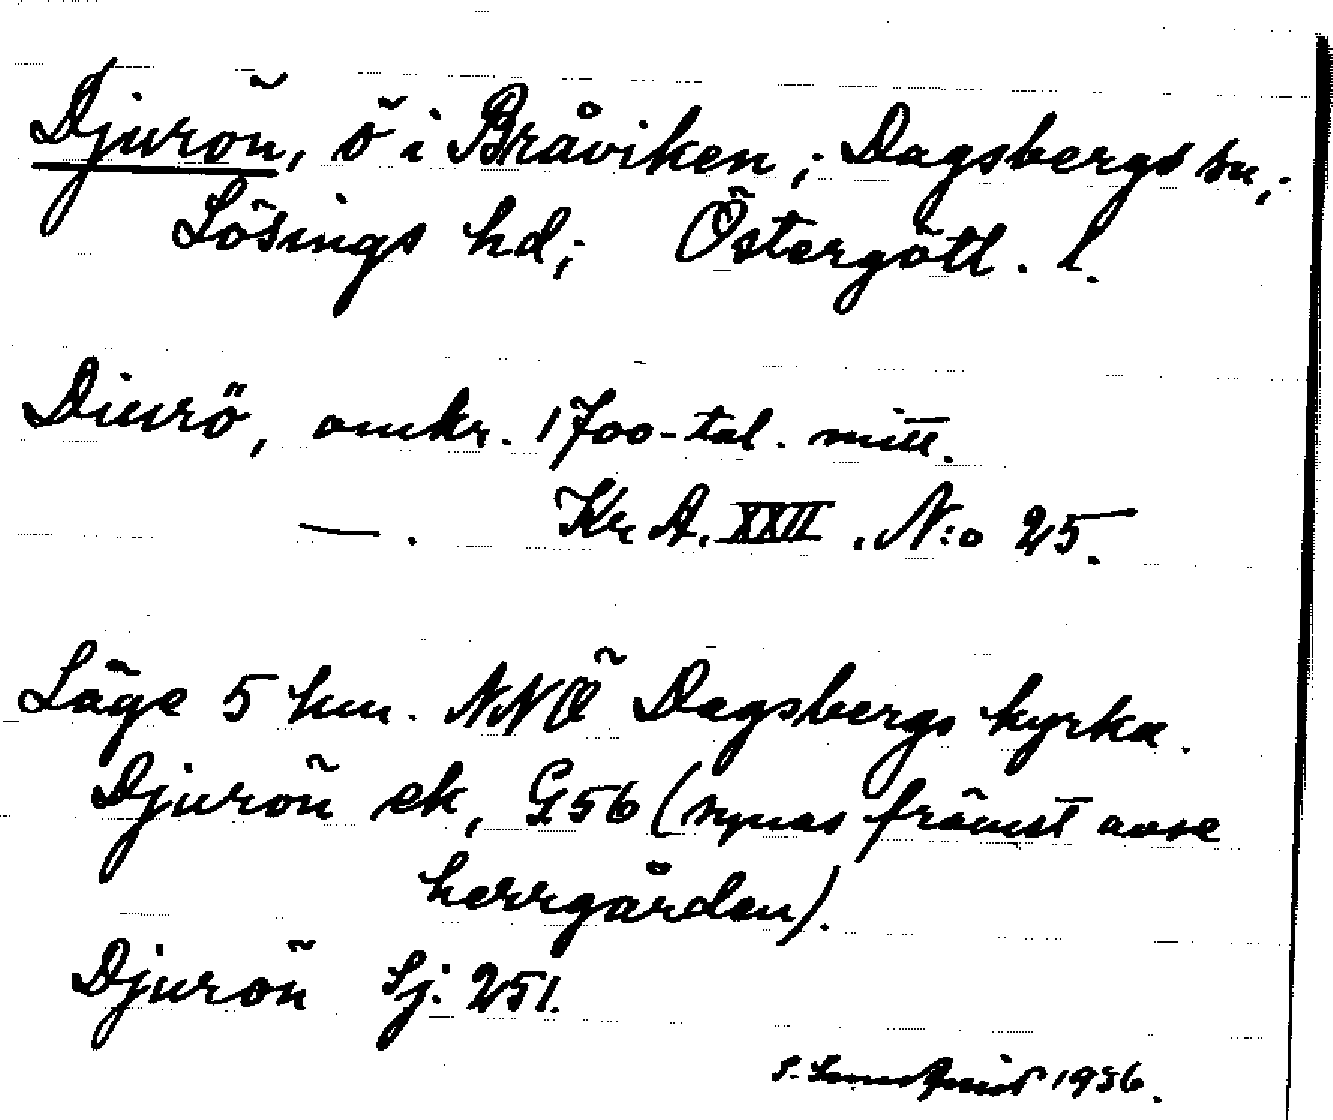 Djurön, ö i Bråviken; Dagsbergs sn,;
Lösings hd; Östergötl. l.
Diurö, omkr. 1700-tal. mitt.
—. Kr. A. XXII. N:o 25.
Läge 5 km. NNÖ Dagsbergs kyrka.
Djurön ek, G56 (synes främst avse
herrgården).
Djurön Sj: 251.
1936.